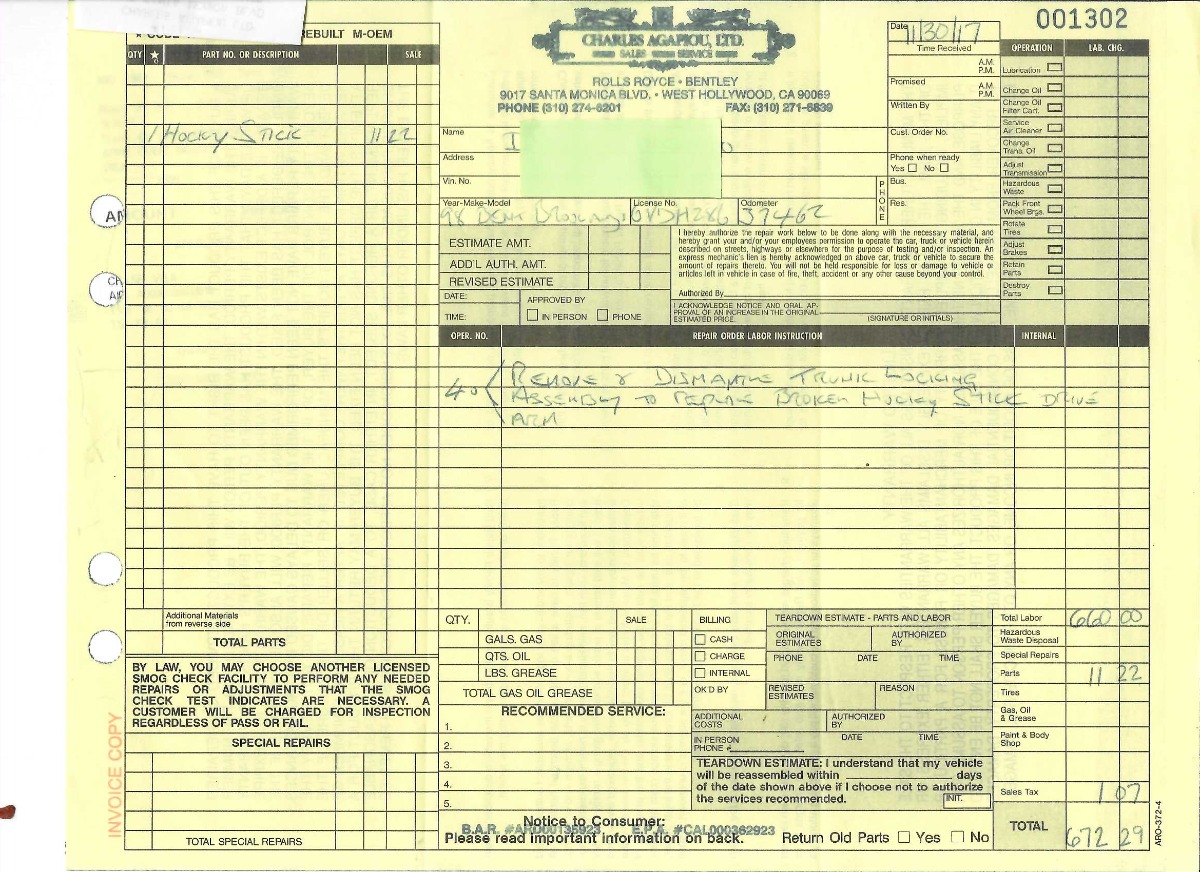 001302
REBUILT M-OEM
QTY ★ PART NO. OR DESCRIPTION SALE
1 Hocky Stick 11 22
CHARLES AGAPIOU, LTD.
SALES SERVICE
ROLLS ROYCE • BENTLEY
9017 SANTA MONICA BLVD. • WEST HOLLYWOOD, CA 90069
PHONE (310) 274-6201 FAX: (310) 271-6839
Date 11/30/17
Time Received
A.M.
P.M.
Promised
A.M.
P.M.
Written By
Cust. Order No.
Phone when ready
Yes No
PHONE
Bus.
Res.
Name
Address
Vin. No.
Year-Make-Model License No. Odometer
98 37462
ESTIMATE AMT.
ADD'L AUTH. AMT.
REVISED ESTIMATE
DATE:
TIME:
APPROVED BY
IN PERSON PHONE
I hereby authorize the repair work below to be done along with the necessary material, and
hereby grant your and/or your employees permission to operate the car, truck or vehicle herein
described on streets, highways or elsewhere for the purpose of testing and/or inspection. An
express mechanic's lien is hereby acknowledged on above car, truck or vehicle to secure the
amount of repairs thereto. You will not be held responsible for loss or damage to vehicle or
articles left in vehicle in case of fire, theft, accident or any other cause beyond your control.
Authorized By
I ACKNOWLEDGE NOTICE AND ORAL AP-
PROVAL OF AN INCREASE IN THE ORIGINAL
ESTIMATED PRICE.
(SIGNATURE OR INITIALS)
OPERATION LAB. CHG.
Lubrication
Change Oil
Change Oil
Filter Cart.
Service
Air Cleaner
Change
Trans. Oil
Adjust
Transmission
Hazardous
Waste
Pack Front
Wheel Brgs.
Rotate
Tires
Adjust
Brakes
Retain
Parts
Destroy
Parts
OPER. NO. REPAIR ORDER LABOR INSTRUCTION INTERNAL
40 Remove & Dismantle Trunk Locking
Assembly to replace Broken Hocky Stick Drive
Arm
Additional Materials
from reverse side
TOTAL PARTS
BY LAW, YOU MAY CHOOSE ANOTHER LICENSED
SMOG CHECK FACILITY TO PERFORM ANY NEEDED
REPAIRS OR ADJUSTMENTS THAT THE SMOG
CHECK TEST INDICATES ARE NECESSARY. A
CUSTOMER WILL BE CHARGED FOR INSPECTION
REGARDLESS OF PASS OR FAIL.
SPECIAL REPAIRS
TOTAL SPECIAL REPAIRS
INVOICE COPY
QTY. SALE
GALS. GAS
QTS. OIL
LBS. GREASE
TOTAL GAS OIL GREASE
RECOMMENDED SERVICE:
1.
2.
3.
4.
5.
BILLING
CASH
CHARGE
INTERNAL
OK'D BY
TEARDOWN ESTIMATE - PARTS AND LABOR
ORIGINAL
ESTIMATES
AUTHORIZED
BY
PHONE DATE TIME
REVISED
ESTIMATES
REASON
ADDITIONAL
COSTS
AUTHORIZED
BY
IN PERSON
PHONE #
DATE TIME
TEARDOWN ESTIMATE: I understand that my vehicle
will be reassembled within days
of the date shown above if I choose not to authorize
the services recommended.
INIT.
Notice to Consumer:
B.A.R. #ARD00135923 E.P.A. #CAL000362923
Please read important information on back.
Return Old Parts Yes No
Total Labor 660 00
Hazardous
Waste Disposal
Special Repairs
Parts 11 22
Tires
Gas, Oil
& Grease
Paint & Body
Shop
Sales Tax 1 07
TOTAL 672 29
ARO-372-4